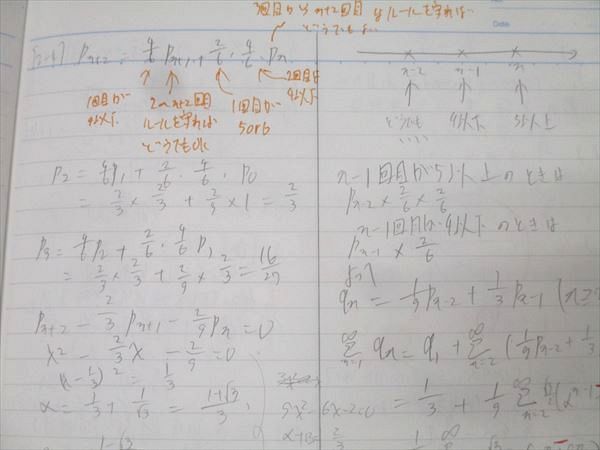 3回目から n+2回目はルールを守れば
P_{n+2} = 4/6 P_{n+1} + 2/6 · 4/6 P_n
1回目が 4以下
2〜n+2回目 ルールを守れば どうでもok
1回目が 5or6
2回目は 4以下
P_2 = 4/6 P_1 + 2/6 · 4/6 · P_0
= 2/3 × 2/3 + 2/9 × 1 = 2/3
P_3 = 4/6 P_2 + 2/6 · 4/6 P_1
= 2/3 × 2/3 + 2/9 × 2/3 = 16/27
P_{n+2} - 2/3 P_{n+1} - 2/9 P_n = 0
x² - 2/3 x - 2/9 = 0
(x - 1/3)² = 1/3
α = 1/3 + 1/√3 = 1-√3/3,
1-√3
Date
n-2 n-1 n
どうでもいい
4以下
5以上
n-1回目が5以上のときは
P_{n-2} × 2/6 × 2/6
n-1回目が4以下のときは
P_{n-1} × 2/6
よって
q_n = 1/9 P_{n-2} + 1/3 P_{n-1} (n≥
∞Σn=1 q_n = q_1 + ∞Σn=2 (1/9 P_{n-2} + 1/3
9x²-6x-2=0
= 1/3 + 1/9 ∞Σn=2
α+β= 2/3